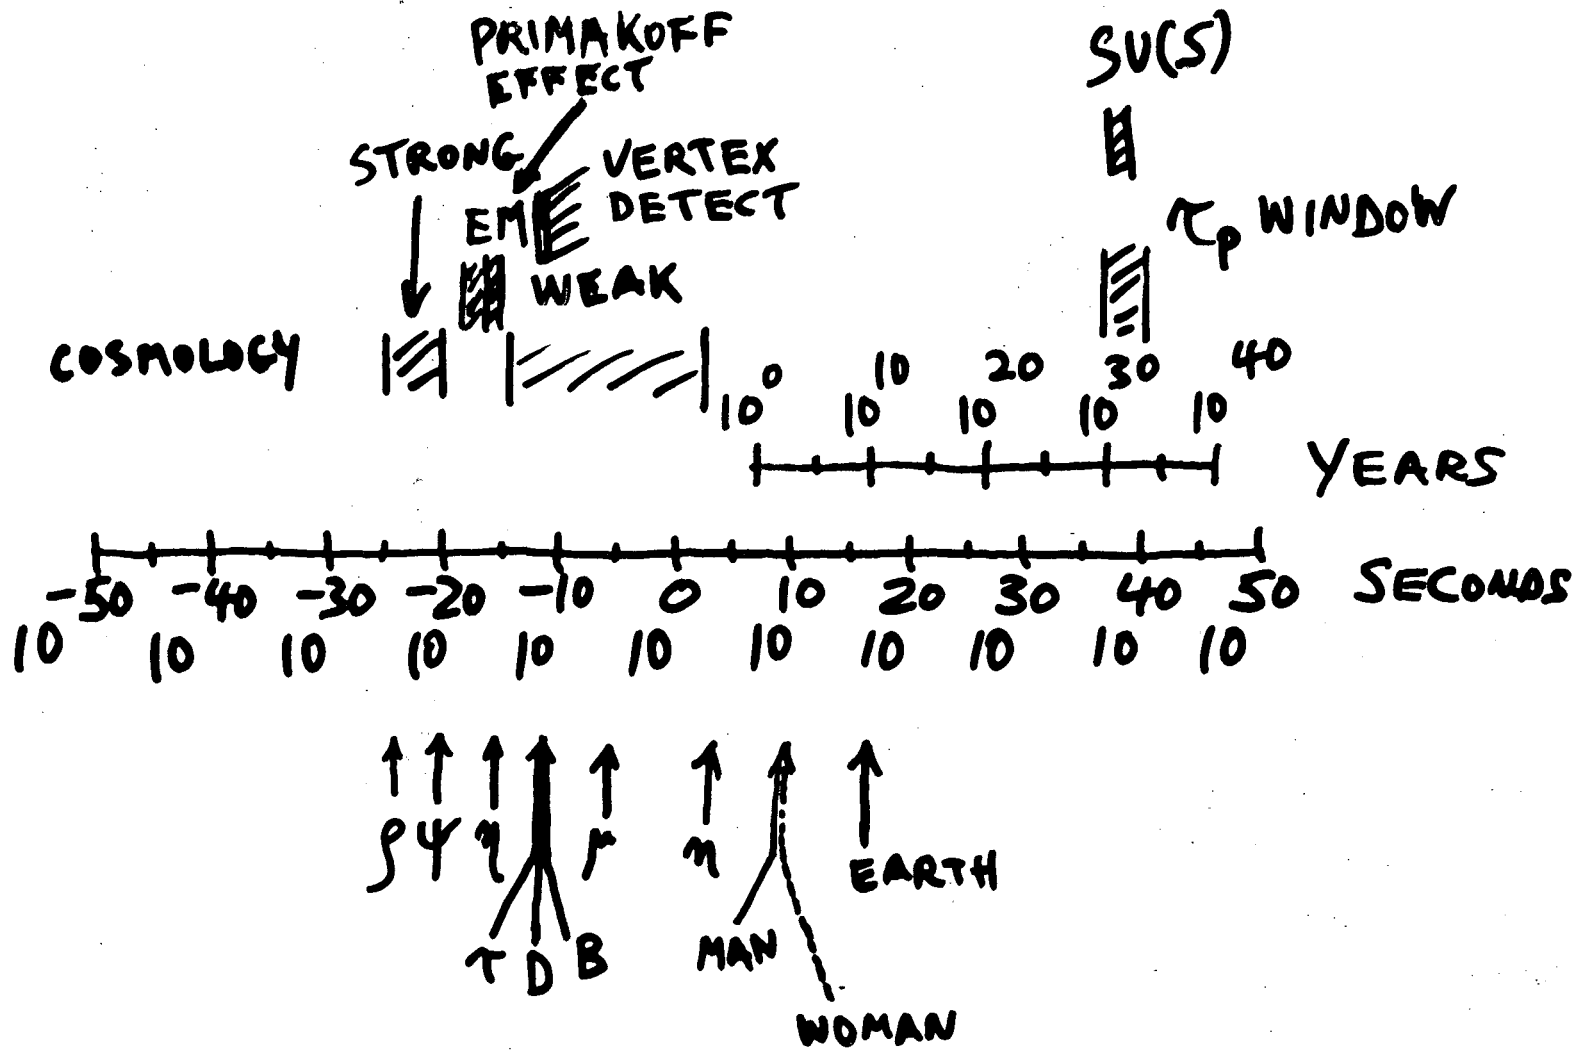 PRIMAKOFF
EFFECT
SU(5)
STRONG
VERTEX
DETECT
EM
τp WINDOW
WEAK
COSMOLOGY
10^0 10^10 10^20 10^30 10^40
YEARS
10^-50 10^-40 10^-30 10^-20 10^-10 10^0 10^10 10^20 10^30 10^40 10^50 SECONDS
ρ ψ η μ n
EARTH
τ D B
MAN
WOMAN